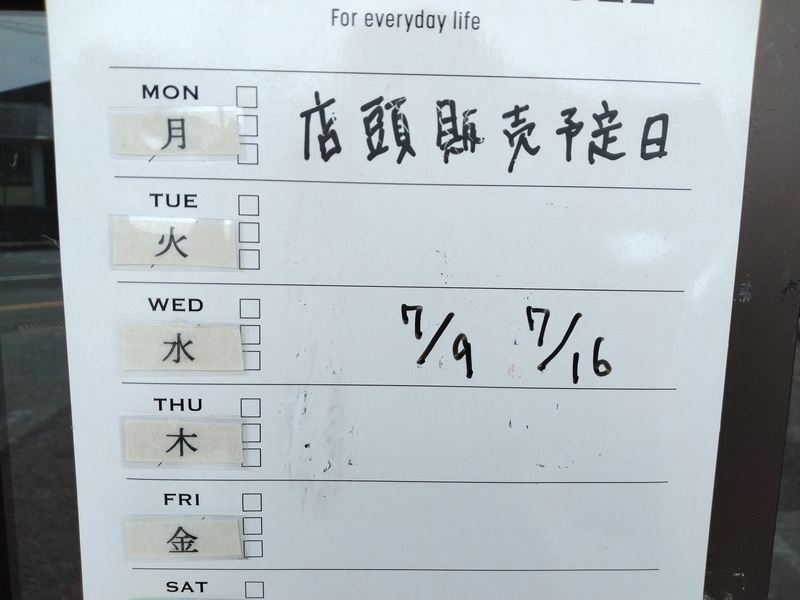 For everyday life
MON
月
店頭販売予定日
TUE
火
WED
水
7/9 7/16
THU
木
FRI
金
SAT